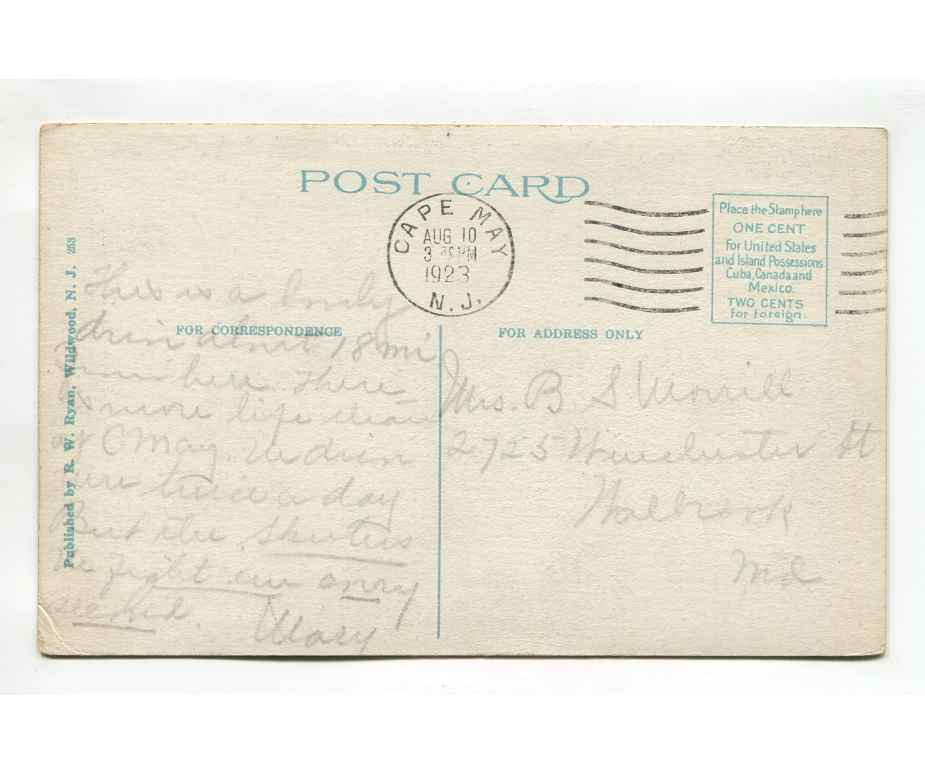 POST CARD
CAPE MAY
AUG 10
3 PM
1923
N.J.
Place the Stamp here
ONE CENT
for United States
and Island Possessions
Cuba, Canada and
Mexico.
TWO CENTS
for Foreign.
FOR CORRESPONDENCE
FOR ADDRESS ONLY
Published by R. W. Ryan, Wildwood, N. J. 253
This is a lovely
about 18 mi
from here. There
is more life than
at C May.
here twice a day
But the Skeeters
fight every
second.
Mary
Mrs. B S Morrill
2725 Winchester St
Walbrook
Md